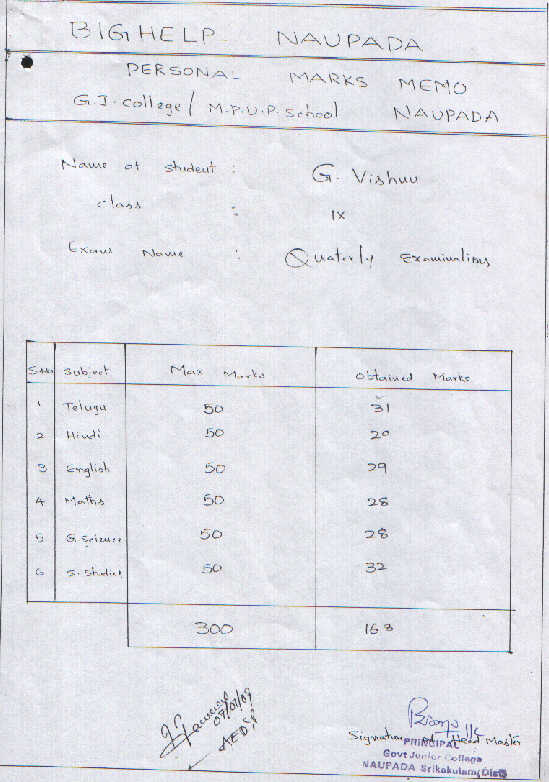 BIGHELP NAUPADA
PERSONAL MARKS MEMO
G.J. College / M.P.U.P. School NAUPADA
Name of Student : G. Vishnu
Class : IX
Exam Name : Quaterly Examinations
S.No Subject Max Marks Obtained Marks
1 Telugu 50 31
2 Hindi 50 20
3 English 50 29
4 Maths 50 28
5 G. Science 50 28
6 S. Studies 50 32
300 168
07/02/09
Signature of Head Master
PRINCIPAL
Govt Junior College
NAUPADA Srikakulam(Dist)